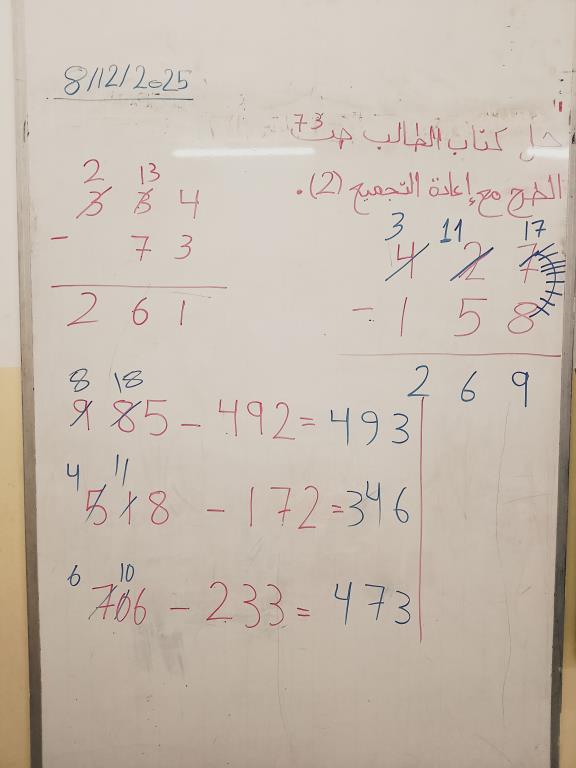 8/12/2025
حل كتاب الطالب ص 73
الطرح مع إعادة التجميع (2).
2 13
3 3 4
- 7 3
2 6 1
3 11 17
4 2 7
- 1 5 8
2 6 9
8 18
985 - 492 = 493
4 11
518 - 172 = 346
6 10
706 - 233 = 473